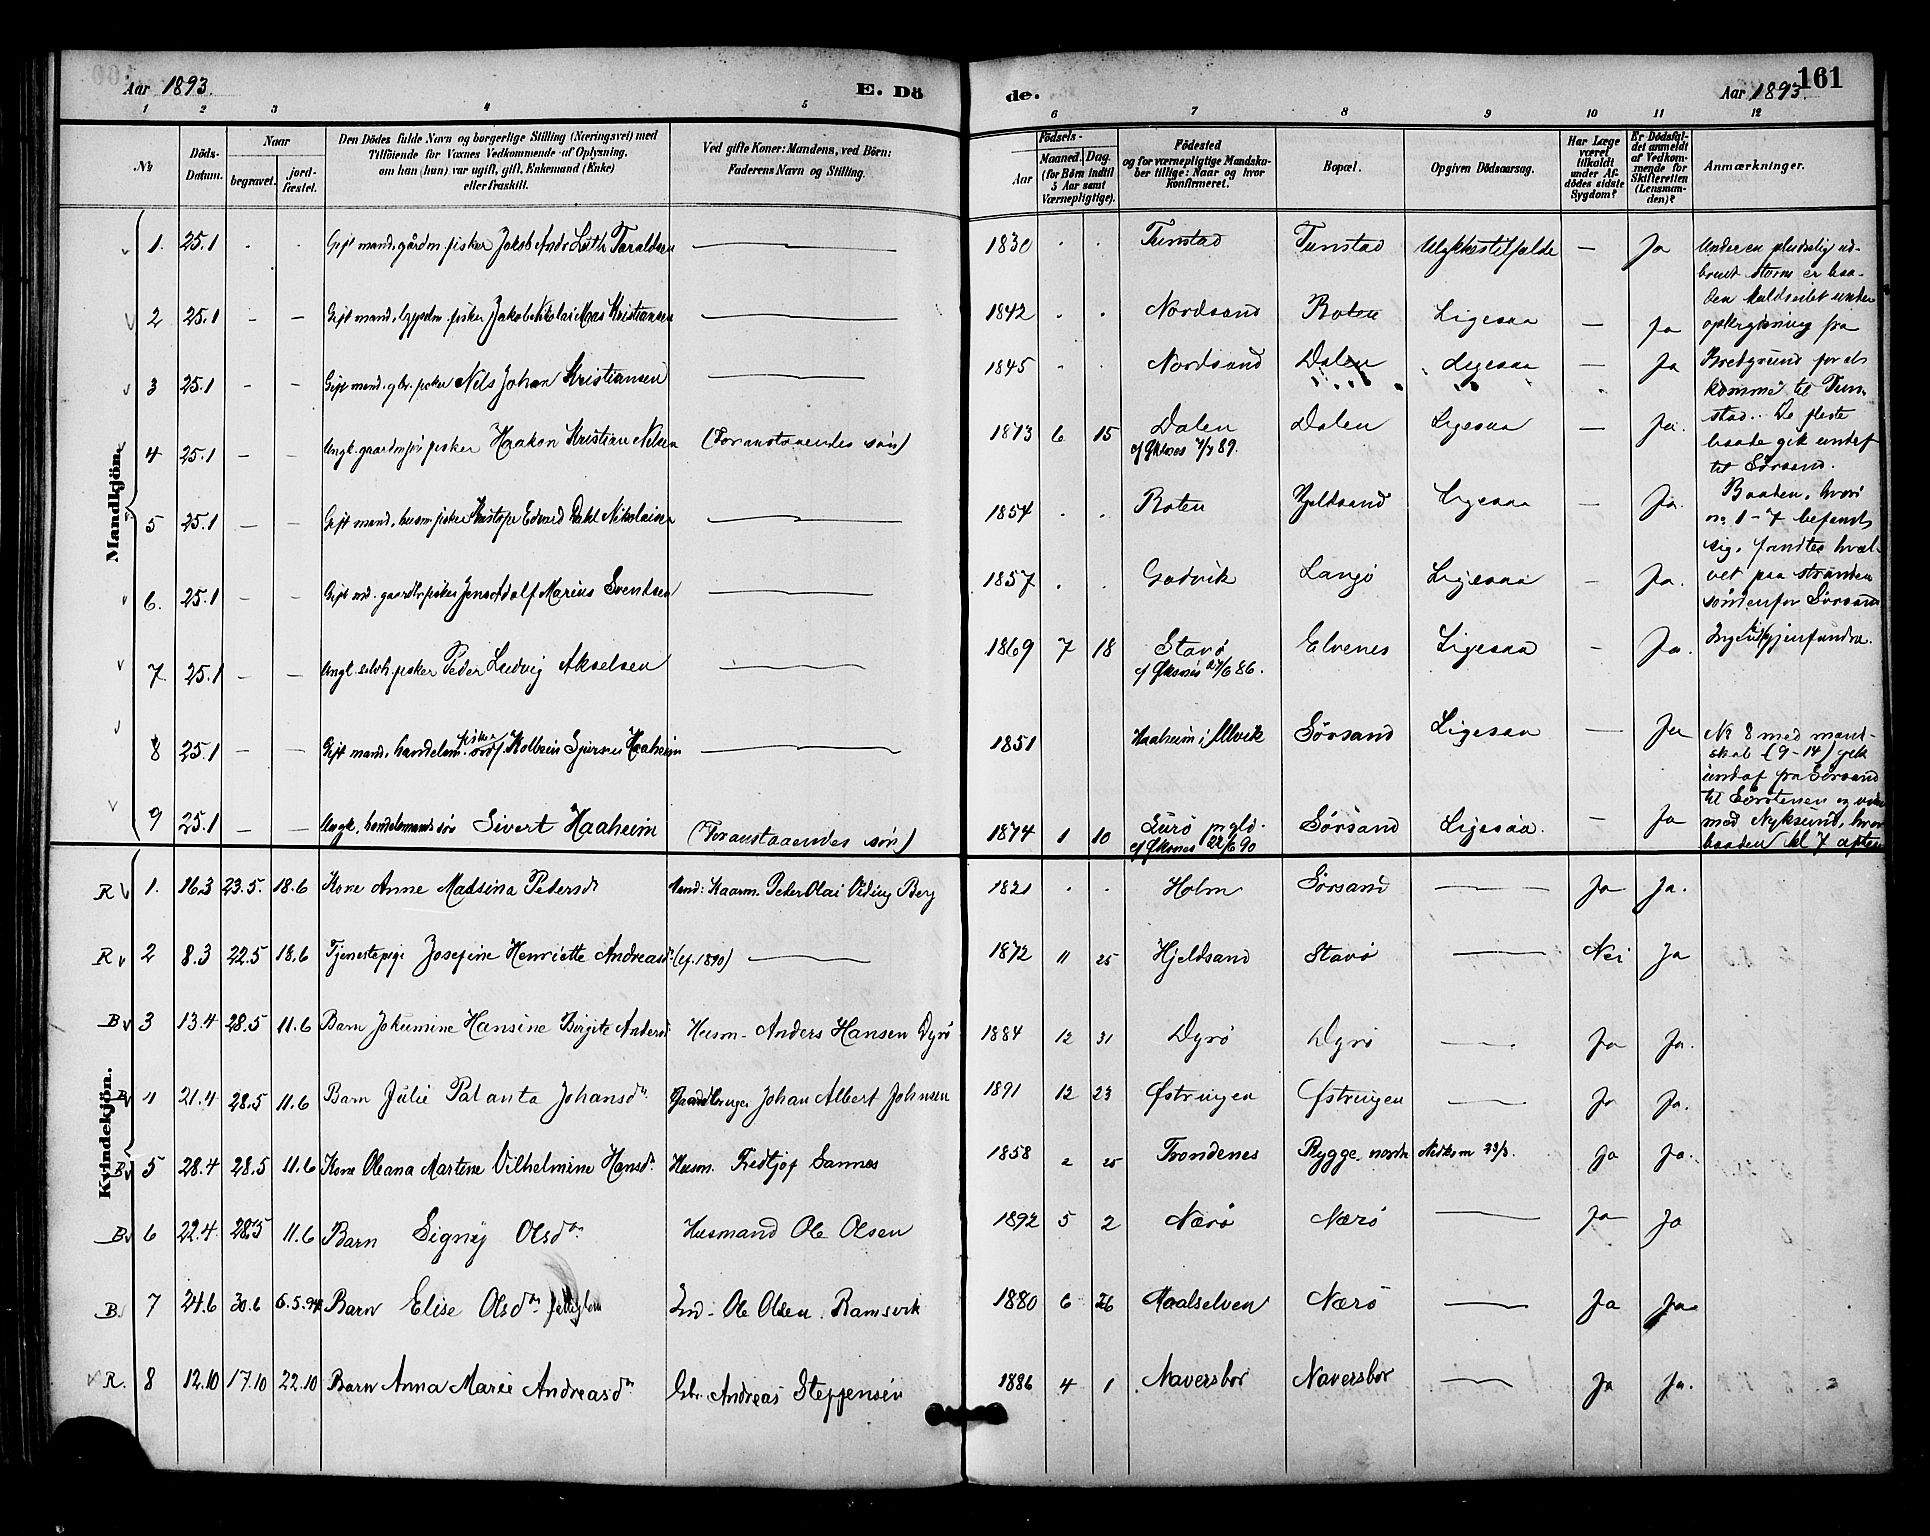 Aar 1893.
E. Döde.
Aar 1893.
161
1 2 3 4 5 6 7 8 9 10 11 12
No
Döds-Datum.
Naar
begravet.
jordfæstet.
Den Dödes fulde Navn og borgerlige Stilling (Næringsvei) med
Tilföiende for Voxnes Vedkommende af Oplysning,
om han (hun) var ugift, gift, Enkemand (Enke)
eller fraskilt.
Ved gifte Koner: Mandens, ved Börn:
Faderens Navn og Stilling.
Födsels-
Aar
Maaned. Dag.
(for Börn indtil
5 Aar samt
Værnepligtige).
Födested
og for værnepligtige Mandskaber tillige: Naar og hvor
konfirmeret.
Bopæl.
Opgiven Dödsaarsag.
Har Læge
været
tilkaldt
under Afdödes sidste
Sygdom?
Er Dödsfaldet anmeldt
af Vedkommende for
Skifteretten
(Lensmanden)?
Anmærkninger.
Mandkjön.
1. 25.1 Gift mand, gårdm. fisker Jakob Andr. Luth Taraldsen 1830 Tunstad Tunstad Ulykkestilfælde — Ja
2 25.1 — — Gift mand, fisker Jakob Nikolai Kristiansen 1842 Nordsand Roten Ligesaa — Ja
3 25.1 — — Gift mand, gbr. fisker Nels Johan Kristiansen 1845 Nordsand Dalen Ligesaa — Ja
4 25.1 — — Ungk. fisker Haakon Kristian Nilsen (Foranstaaendes søn) 1873 6 15 Dalen Dalen Ligesaa — Ja.
cf Øksnes 89.
5 25.1 — — Gift mand, husm. fisker Kristofer Edvard Dahl Nikolaisen 1854 Roten Hjeldsand Ligesaa — Ja.
6. 25.1 — — Gift md. fisker Jens Adolf Marius Svendsen 1857 Gadvik Langø Ligesaa — Ja.
7. 25.1 — — Ungk. selvh. fisker Peder Ludvig Akselsen 1869 7 18 Stavø Elvenes Ligesaa Ja.
cf Øksnes 27/6 86.
8 25.1 — — Gift mand, handelsm. fisker Kolbein Gjerne Haaheim 1851 Haaheim i Ulvik Sørsand Ligesaa — Ja
9 25.1 — — Ungk. handelsmands søn Sivert Haaheim (Foranstaaendes søn) 1874 1 10 Lurø pgld. Sørsand Ligesaa. — Ja
cf Øksnes 22/6 90
Under en pludselig udbrudt storm er baaden kuldseilet under
opkrydsning fra
Bredgrund for at
komme til Tunstad. De fleste
baade gik undaf
til Sørsand.
Baaden, hvori
no 1-7 befandt
sig, fandtes hvælvet paa stranden
søndenfor Sørsand
Ingen lig gjenfundne.
No 8 med mandskab (9-14) gik
undaf fra Sørsand
med Nyksund, hvor
baaden kl 7 aften
Kvindekjön.
R 1. 16.3 23.5. 18.6 Kone Anne Madsina Pedersdr Mand: Kaarm. Peder Olai Viding Berg 1821 Holm Sørsand Ja Ja.
R 2 8.3 22.5 18.6 Tjenestepige Josefine Henriette Andreasdr (cf. 1890) 1872 11 25 Hjeldsand Stavø Nei Ja
B 3 13.4 28.5 11.6 Barn Johannine Hansine Birgite Andersdr Husm. Anders Hansen Dyrø 1884 12 31 Dyrø Dyrø Ja Ja.
B 4 21.4 28.5 11.6 Barn Julie Palanta Johansdr Gaardbruger Johan Albert Johnsen 1891 12 23 Østringen Østringen Ja Ja.
B 5 28.4 28.5 11.6 Kone Oleana Martine Vilhelmine Hansdr Husm. Fredtjof Sannes 1858 2 25 Trondenes Rygge, nordre Nedkom 23/3. Ja Ja.
B 6 22.4 28.5 11.6 Barn Signij Olsdr Husmand Ole Olsen 1892 5 2 Nærø Nærø Ja Ja
B 7 24.6 30.6 6.5.94 Barn Elise Olsdr fattiglem Ind. Ole Olsen Ramsvik 1880 6 26 Maalselven Nærø Ja Ja
R. 8 12.10 17.10 22.10 Barn Anna Marie Andreasdr Gbr. Andreas Steffensen 1886 4 1 Naversbor Naversbor Ja Ja.